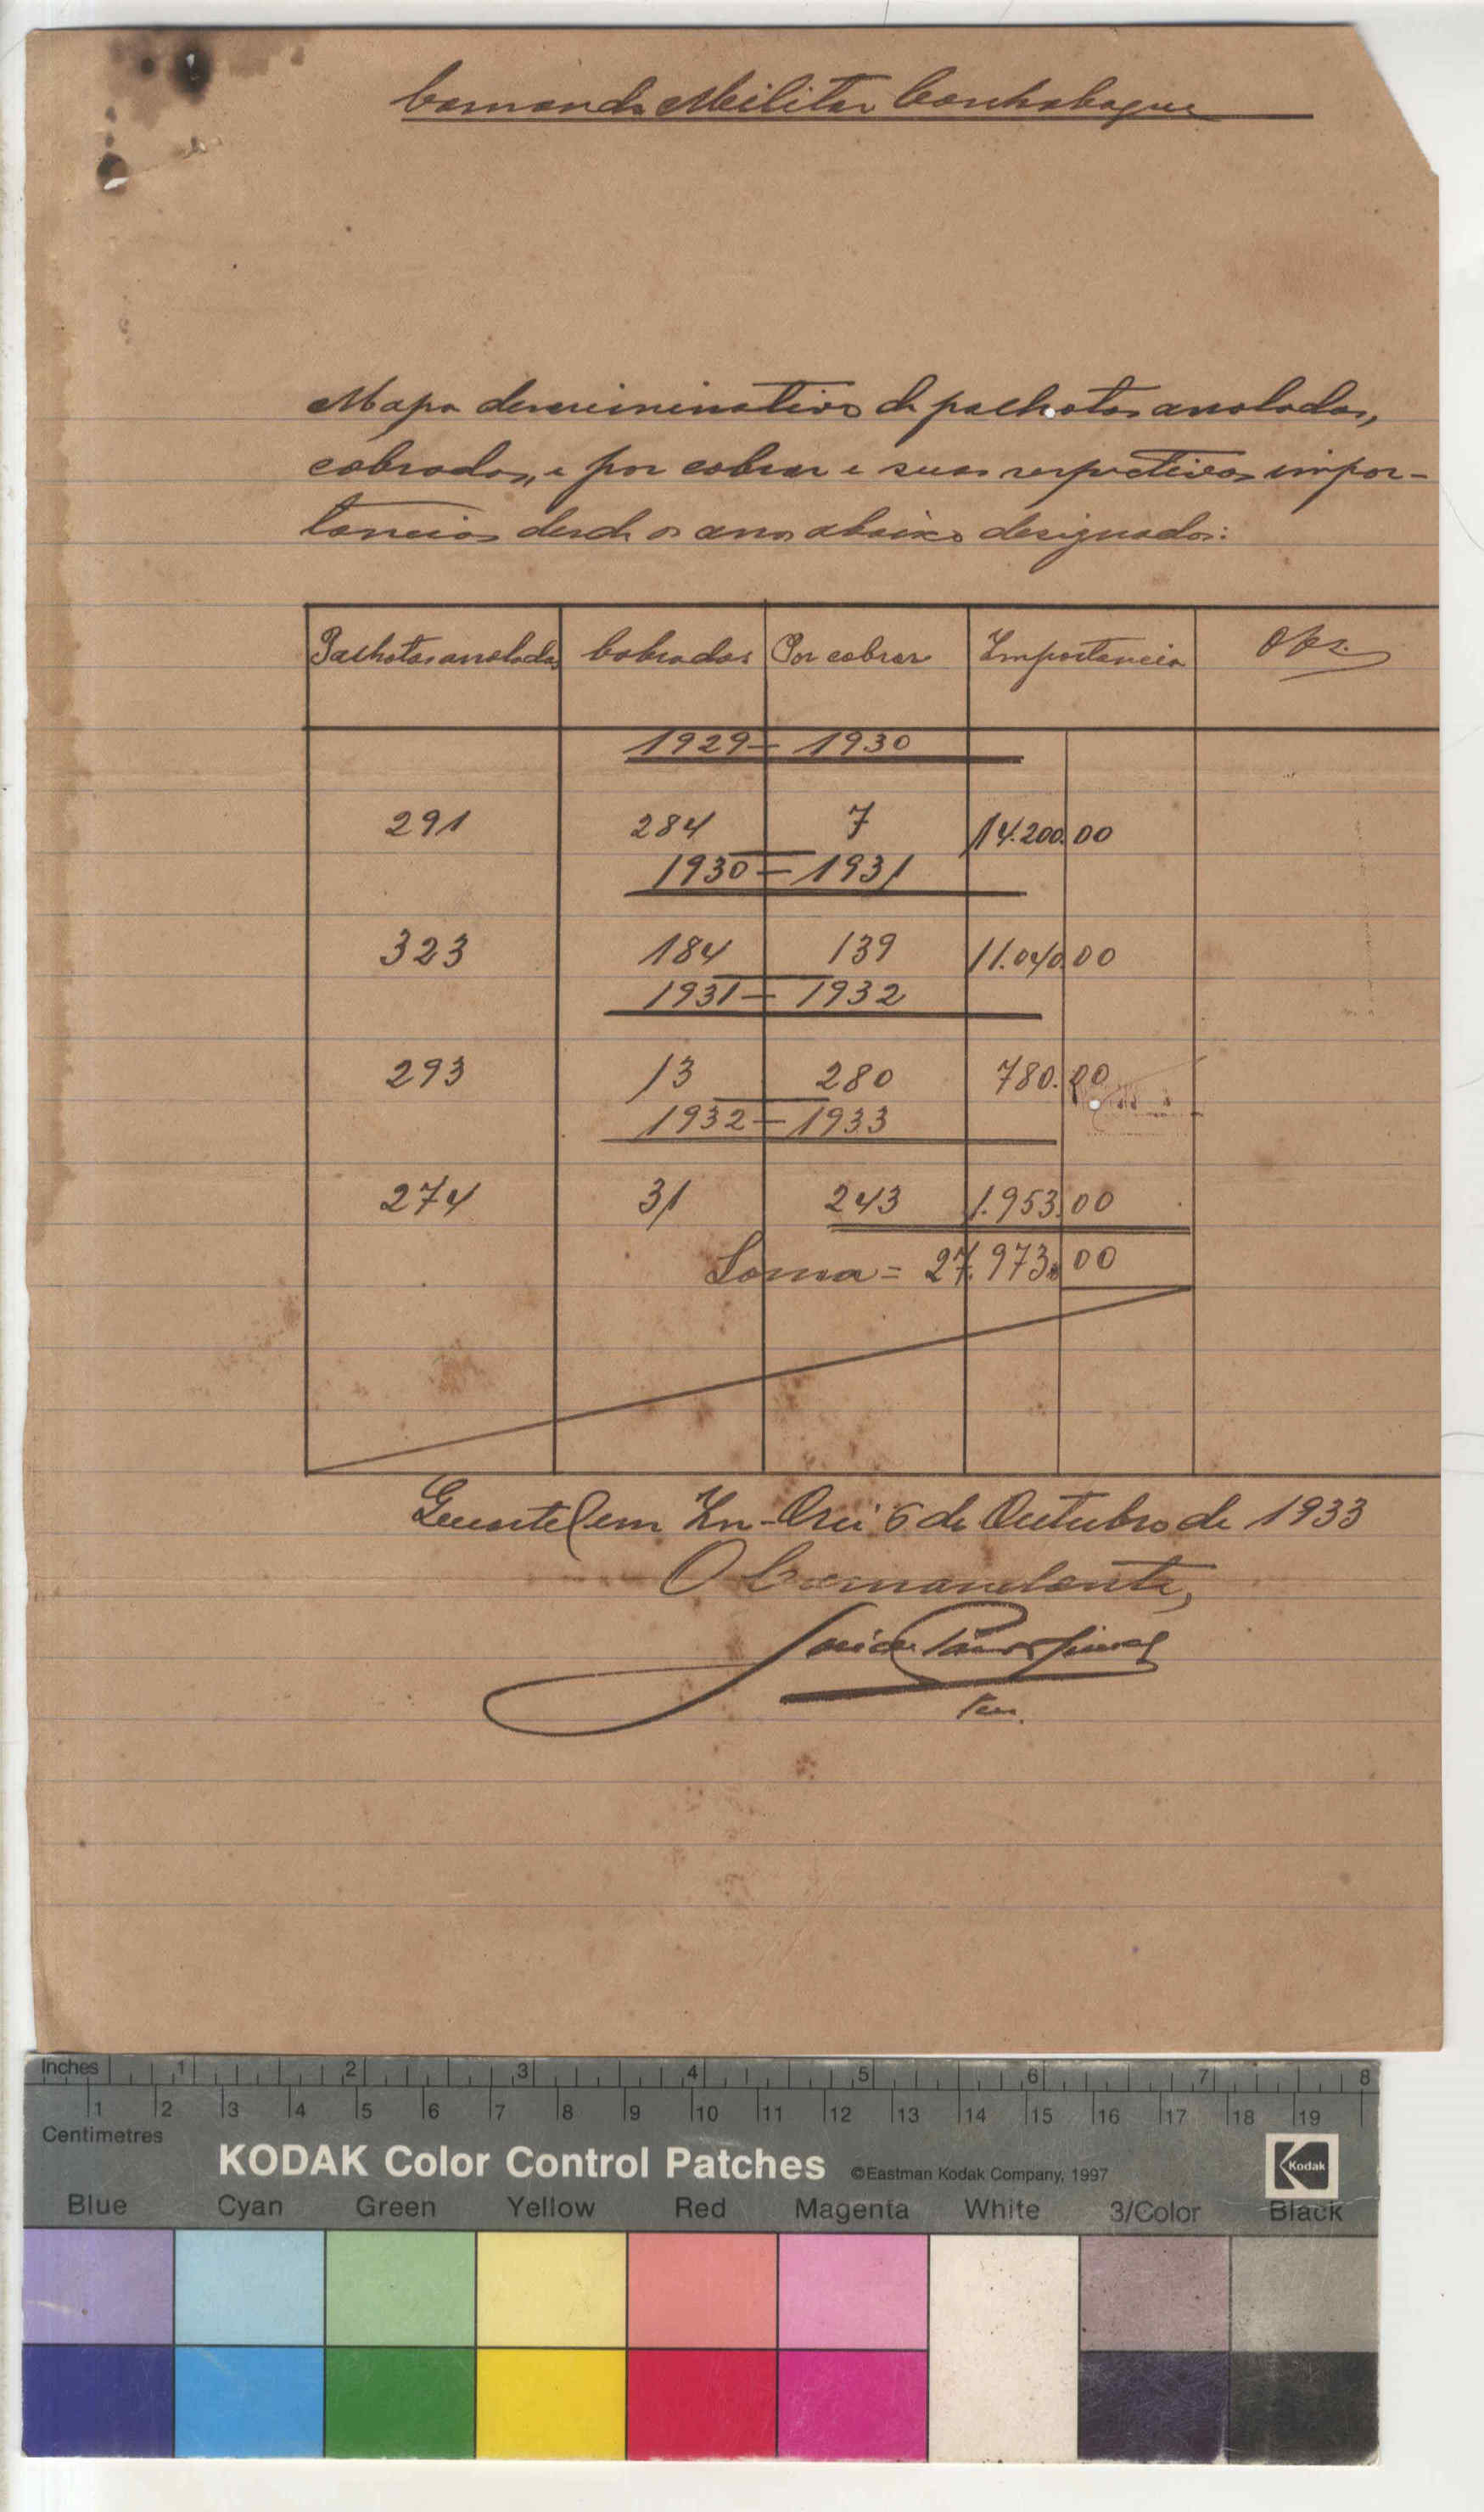 Comando Militar Canhabaque
Mapa descriminativo de palhotas arroladas,
cobradas, e por cobrar e suas respectivas impor-
tancias desde os anos abaixo designados:
Palhotas arroladas Cobradas Por cobrar Importancia Obs.
1929 — 1930
291 284 7 14.200.00
1930 — 1931
323 184 139 11.040.00
1931 — 1932
293 13 280 780.00
1932 — 1933
274 31 243 1.953.00
Soma = 27.973.00
Quartel em In-Orei 6 de Outubro de 1933
O Comandante,
Ten.
Inches 1 2 3 4 5 6 7 8
1 2 3 4 5 6 7 8 9 10 11 12 13 14 15 16 17 18 19
Centimetres
KODAK Color Control Patches ©Eastman Kodak Company, 1997 Kodak
Blue Cyan Green Yellow Red Magenta White 3/Color Black